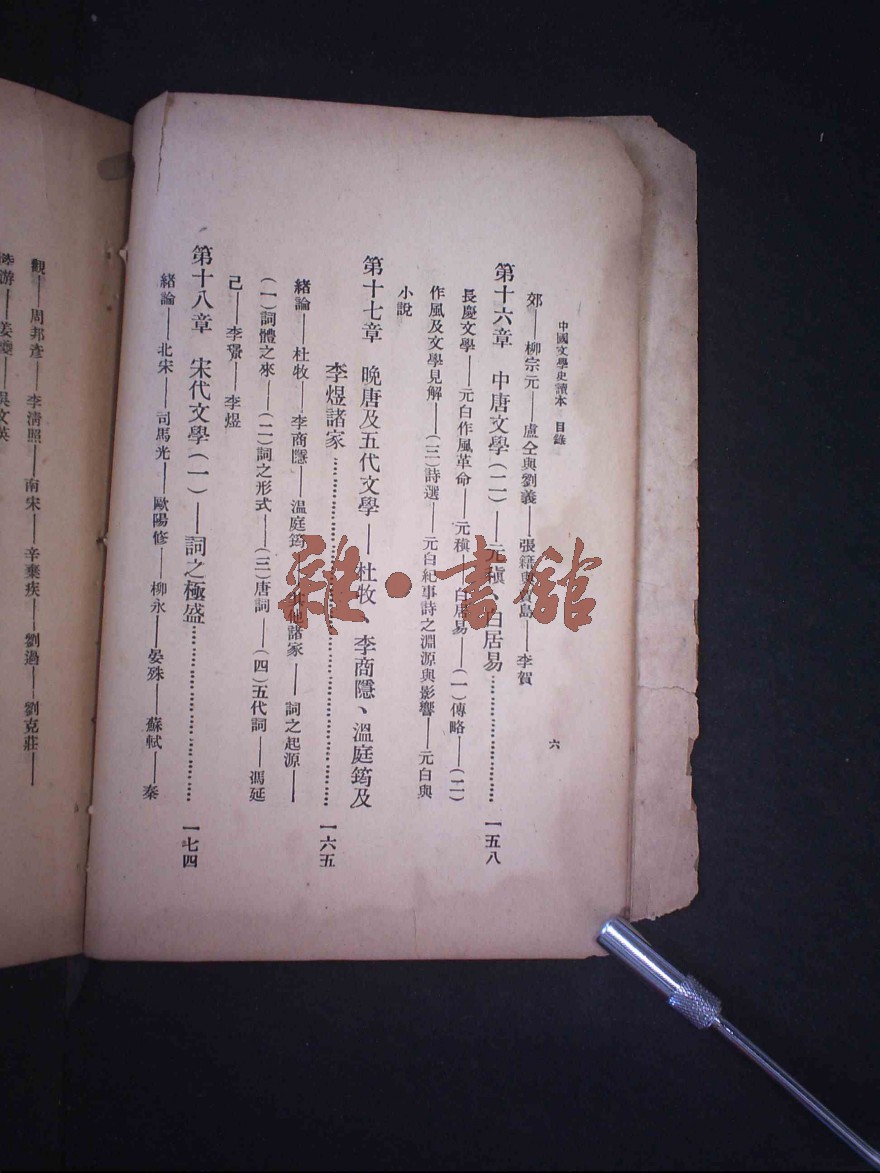 中國文學史讀本　目錄
六
郊——柳宗元——盧仝與劉義——張籍與賈島——李賀
第十六章　中唐文學(二)——元稹、白居易……………………一五八
長慶文學——元白作風革命——元稹——白居易——(一)傳略——(二)
作風及文學見解——(三)詩選——元白紀事詩之淵源與影響——元白與
小說
第十七章　晚唐及五代文學——杜牧、李商隱、溫庭筠及
李煜諸家……………………一六五
緒論——杜牧——李商隱——溫庭筠——其他諸家——詞之起源——
(一)詞體之來——(二)詞之形式——(三)唐詞——(四)五代詞——馮延
己——李璟——李煜
第十八章　宋代文學(一)——詞之極盛……………………一七四
緒論——北宋——司馬光——歐陽修——柳永——晏殊——蘇軾——秦
觀——周邦彥——李清照——南宋——辛棄疾——劉過——劉克莊——
陸游——姜夔——吳文英
雜·書館